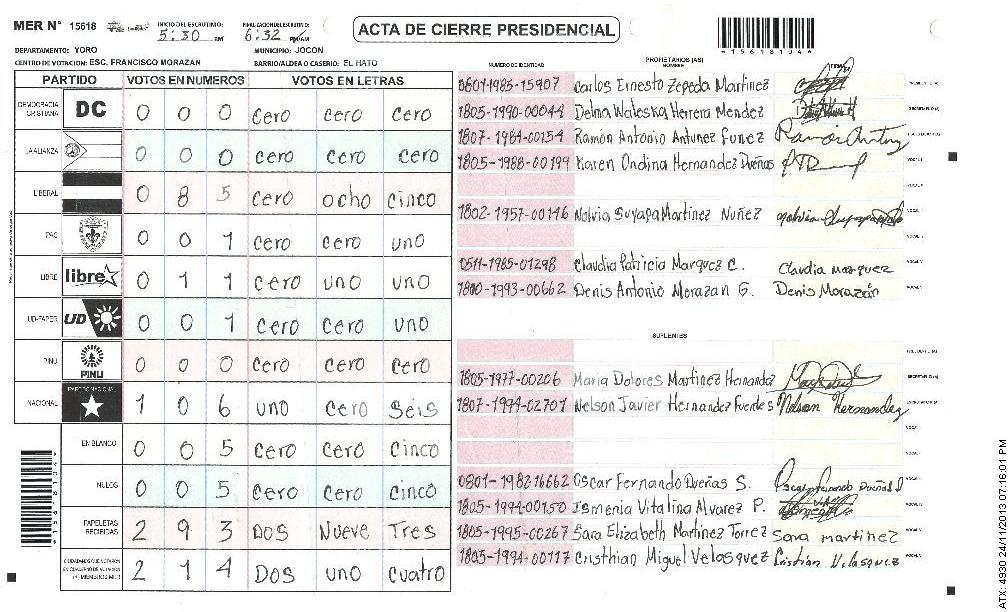 MER N° 15618 INICIO DEL ESCRUTINIO: 5:30 PM FINALIZACION ESCRUTINIO: 6:32 PM/AM ACTA DE CIERRE PRESIDENCIAL *15618104*
DEPARTAMENTO: YORO MUNICIPIO: JOCON
CENTRO DE VOTACION: ESC. FRANCISCO MORAZAN BARRIO/ALDEA O CASERIO: EL HATO
PARTIDO VOTOS EN NUMEROS VOTOS EN LETRAS
DEMOCRACIA CRISTIANA DC 0 0 0 cero cero cero
LA ALIANZA 0 0 0 cero cero cero
LIBERAL 0 8 5 cero ocho cinco
PAC 0 0 1 cero cero uno
LIBRE libre 0 1 1 cero uno uno
UD-FAPER UD 0 0 1 cero cero uno
PINU PINU 0 0 0 cero cero cero
NACIONAL PARTIDO NACIONAL 1 0 6 uno cero seis
EN BLANCO 0 0 5 cero cero cinco
NULOS 0 0 5 cero cero cinco
PAPELETAS RECIBIDAS 2 9 3 Dos Nueve Tres
CIUDADANOS QUE VOTARON 2 1 4 Dos uno cuatro
PROPIETARIOS (AS)
NUMERO DE IDENTIDAD NOMBRE FIRMA
0601-1985-15907 Carlos Ernesto Zepeda Martinez
1805-1990-00044 Delma Waleska Herrera Mendez
1807-1984-00154 Ramón Antonio Antunez Funez
1805-1988-00199 Karen Ondina Hernandez Dueñas
1802-1957-00146 Nolvia Suyapa Martinez Nuñez
0511-1985-01298 Claudia Patricia Marquez C. Claudia marquez
1800-1993-00662 Denis Antonio Morazan G. Denis Morazán
SUPLENTES
1805-1977-00206 Maria Dolores Martinez Hernandez
1807-1994-02707 Nelson Javier Hernandez Fuentes Nelson Hernandez
0801-1982-16662 Oscar Fernando Dueñas S. Oscar Fernando Dueñas S
1805-1994-00150 Ismenia Vitalina Alvarez P.
1805-1995-00267 Sara Elizabeth Martinez Torrez Sara martinez
1805-1994-00117 Cristhian Miguel Velasquez Cristian Velasquez
ATX: 4930 24/11/2013 07:16:01 PM